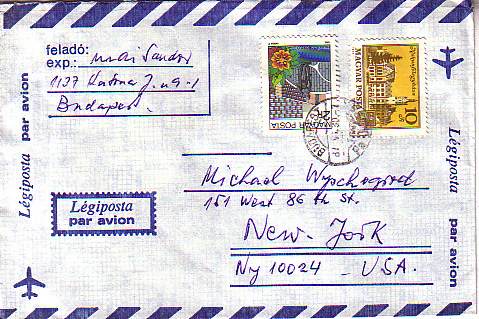 feladó:
exp.: Sándor
1137 Katona J. u 9-1
Budapest
Légiposta par avion
Légiposta
par avion
MAGYAR POSTA
MAGYAR POSTA
10 Ft
BUDAPEST
Michael Wyschogrod
151 West 86 th St.
New-York
Ny 10024 - USA.
Légiposta par avion